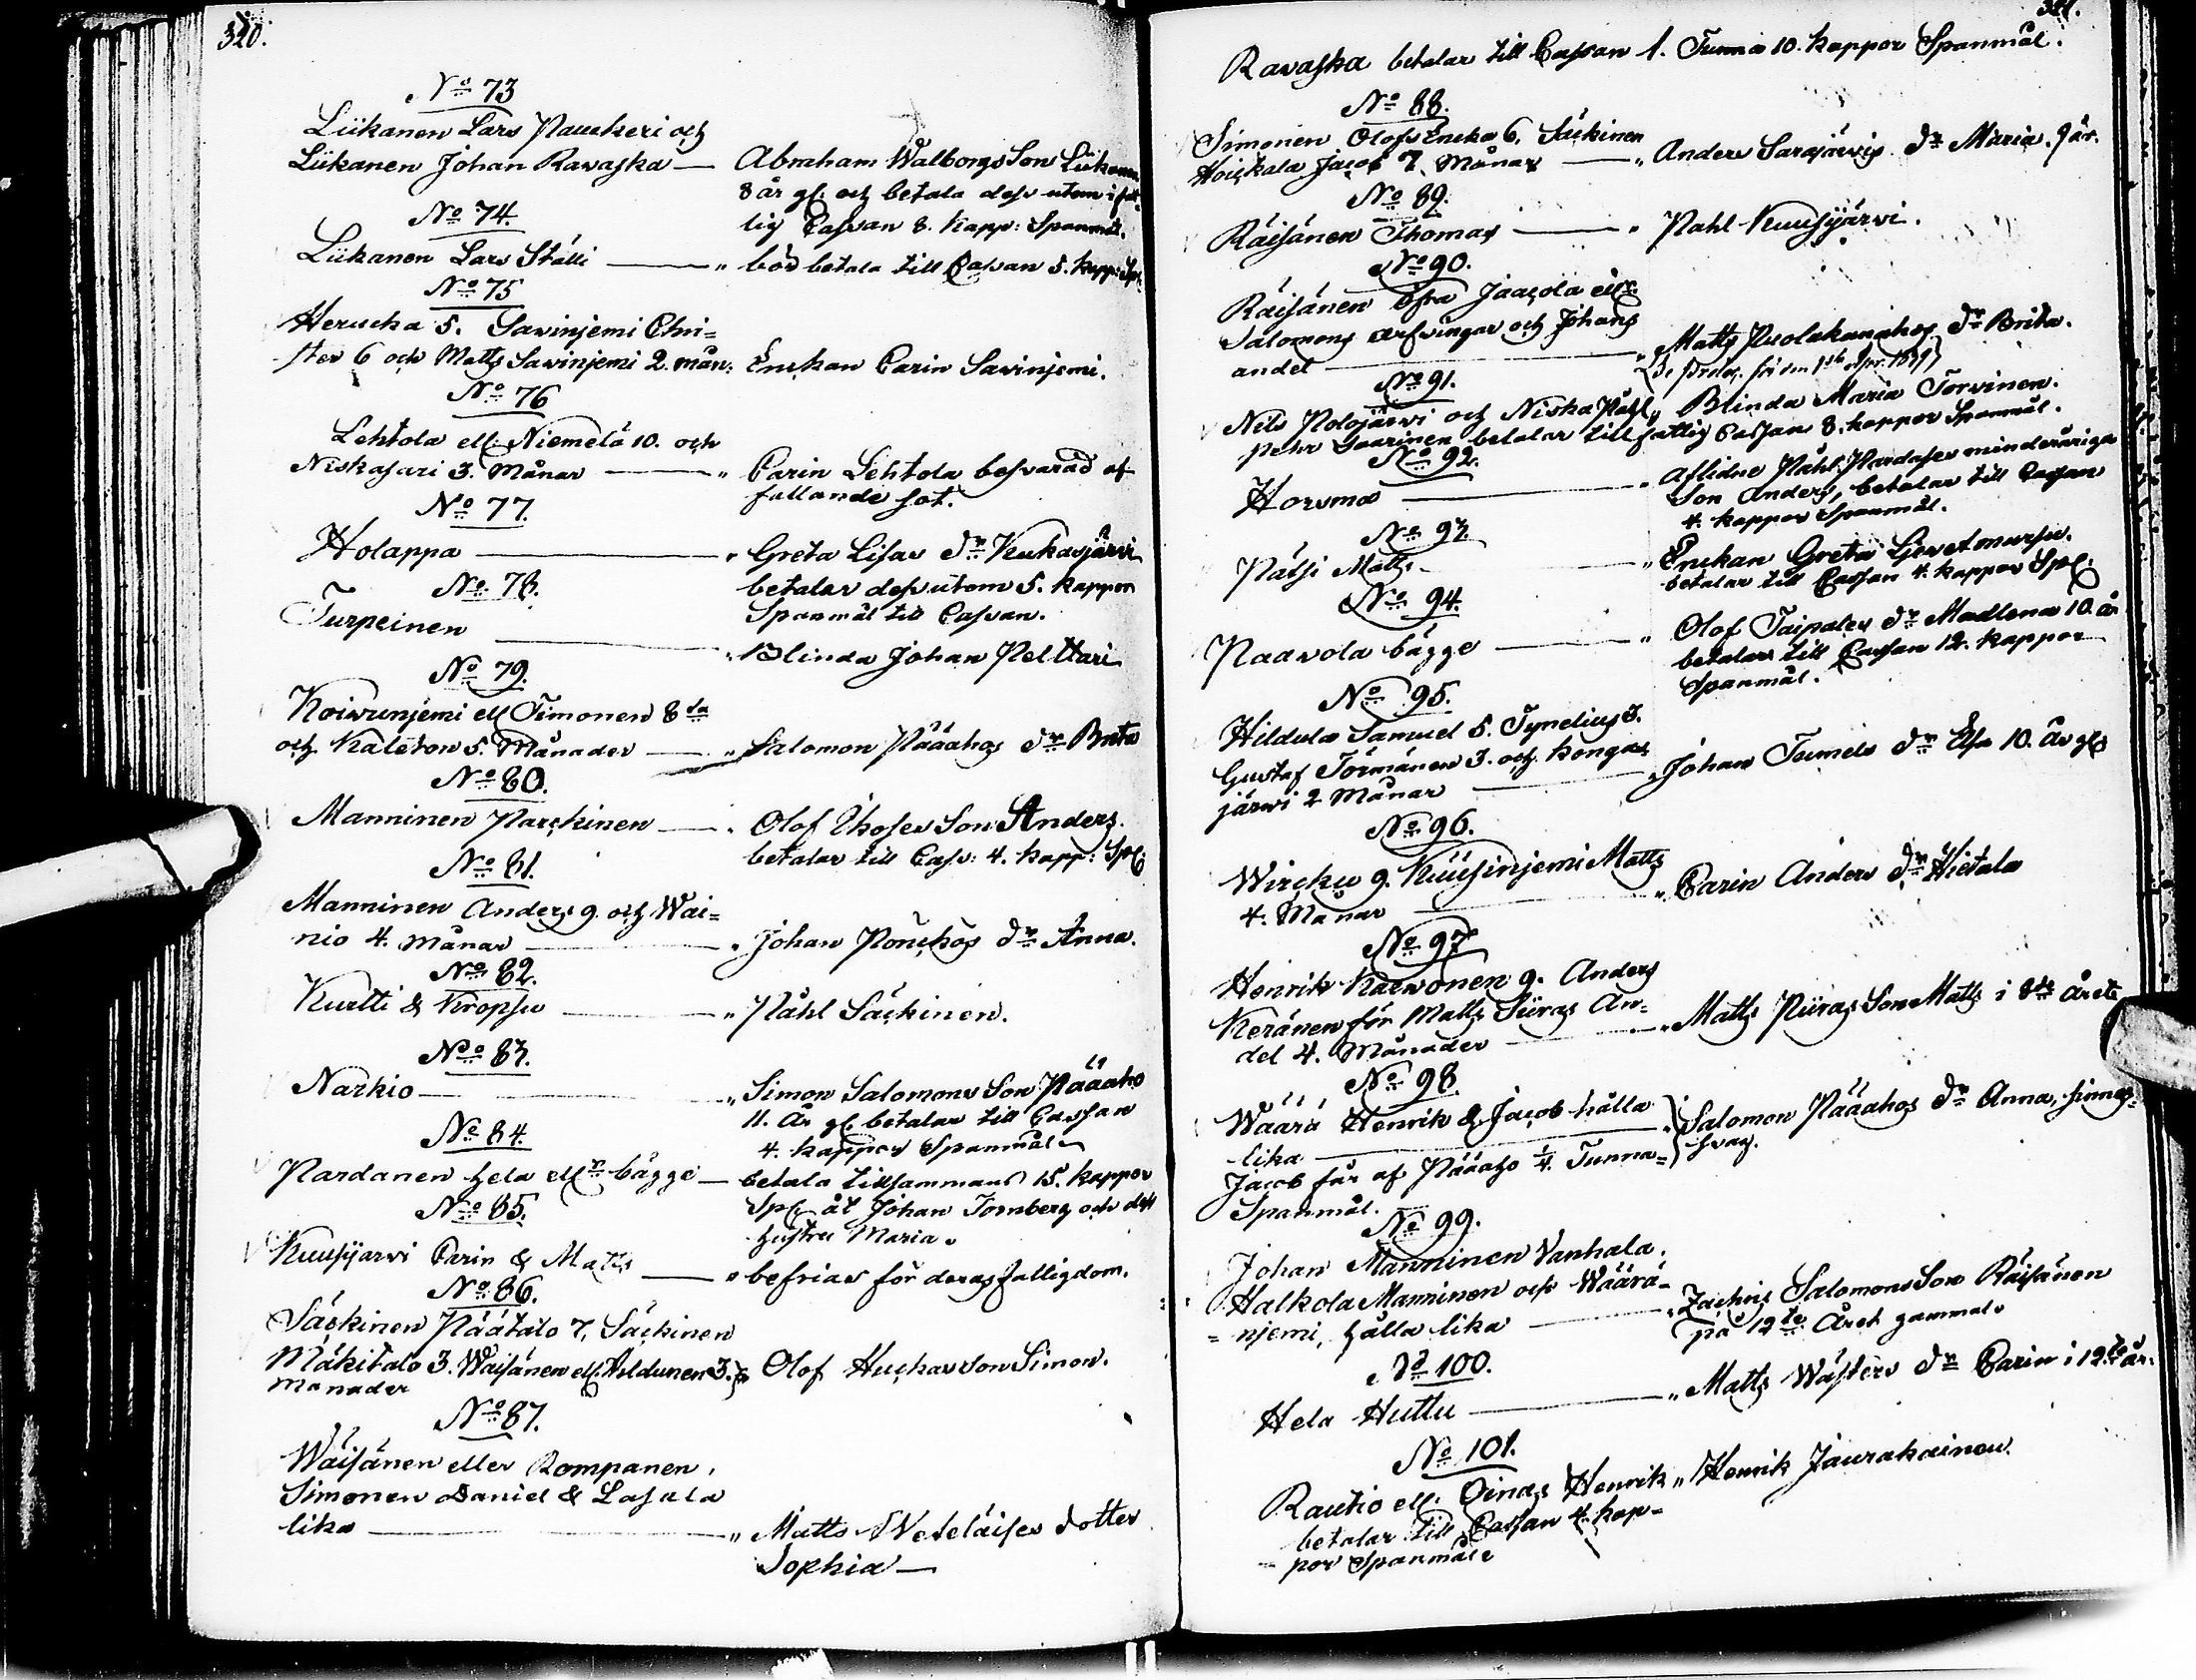 320.
No 73
Liikanen Lars Pauckeri och
Liikanen Johan Ravaska — Abraham Walborgs Son Liikanen
8 år gl. och betala dess utom i fat-
tig Cassan 8. Kapp: Spanmål.
No 74.
Liikanen Lars Ställi — " bör betala till Cassan 5. Kapp: Sp.
No 75
Herucka 5. Savinjemi Chri=
ster 6 och Matts Savinjemi 2. mån: Enckan Carin Savinjemi.
No 76
Lehtola ell: Niemelä 10. och
Niskasari 3. Månar — " Carin Lehtola besvarad af
fallande sot.
No 77.
Holappa — " Greta Lisas dr Kukasjärvi
betalar dess utom 5. Kappor
Spanmål till Cassan.
No 78.
Turpeinen — " Blinda Johan Pelttari
No 79.
Koivunjemi ell Timonen 8 ta
och Kaleton 5. Månader — " Salomon Pääahos dr Brita
No 80.
Manninen Parckinen — " Olof Uhoses Son Anders.
betalar till Cass: 4. Kapp: Sp.
No 81.
Manninen Anders 9. och Wai=
nio 4. månar — " Johan Pönckös dr Anna.
No 82.
Kurtti & Kropsu — " Påhl Säckinen.
No 83.
Narkio — " Simon Salomons Son Pääaho
11. År gl. betalar till Cassan
4. Kappor Spanmål
No 84.
Pardanen hela ellr bägge — betala tillsammans 15. Kappor
Sp. åt Johan Tornberg och dess
hustru Maria.
No 85.
Kuusijärvi Carin & Matts — " befrias för deras fattigdom.
No 86.
Säckinen Päätalo 7, Säckinen
Mäkitalo 3. Waisänen ell. Hildunen 3. Olof Huckas son Simon.
Månader
No 87.
Wäisänen eller Rompanen,
Simonen Daniel & Lasala
lika — " Matts Weteläises dotter
Sophia —
321.
Ravaska betalar till Cassan 1. Tunna 10. Kappor Spanmål.
No 88.
Simonen Olofs Encka 6, Säckinen
Hoickala Jacob 7. Månar — " Anders Sarajärvis dr Maria. 9 år.
No 89.
Räisänen Thomas — " Pahl Kuusijärvi.
No 90.
Räisänen Öfra Jaacola ell.
Salomons arfvingar och Johans
andel — " Matts Puolakanahos dr Brita.
No 91.
Nils Polojärvi och Niska Påhl " Blinda Maria Torvinen.
Pehr Saarinen betalar till fattig Cassan 8. kappor Spanmål.
No 92.
Horsma — " Aflidne Påhl Pardases minderåriga
Son Anders, betalar till Cassan
4. kappor Spanmål.
No 93.
Pätsi Matts — " Enckan Greta
betalar till Cassan 4. kappor Sp.
No 94.
Paavola bägge — " Olof Taipales dr Madlena 10. år
betalar till Cassan 12. Kappor
Spanmål.
No 95.
Hildula Samuel 5. Tynelius 3.
Gustaf Törmänen 3. och Kongas
järvi 2 Månar — " Johan Tumels dr Elsa 10. År gl
No 96.
Wircku 9. Kuusinjemi Matts
4. Månar — " Carin Anders dr Hietala
No 97
Henrik Karvonen 9. Anders
Keränen för Matts Piiras An=
del 4. Månader — " Matts Piiras Son Matts i 8de året
No 98.
Wäärä Henrik & Jacob hålla
lika — " Salomon Pääahos dr Anna, sinnes=
svag.
Jacob får af Pääaho 1/4. Tunna=
Spanmål.
No 99.
Johan Manninen Vanhala.
Halkola Manninen och Wäärä=
= njemi, hålla lika — " Zachris Salomons Son Räisänen
på 12te Året gammal
No 100.
Hela Huttu — " Matts Wästers dr Carin i 12te år.
No 101.
Rautio ell. Oinas Henrik " Henrik Jaurakainen.
betalar till Cassan 4. kap=
por Spanmål